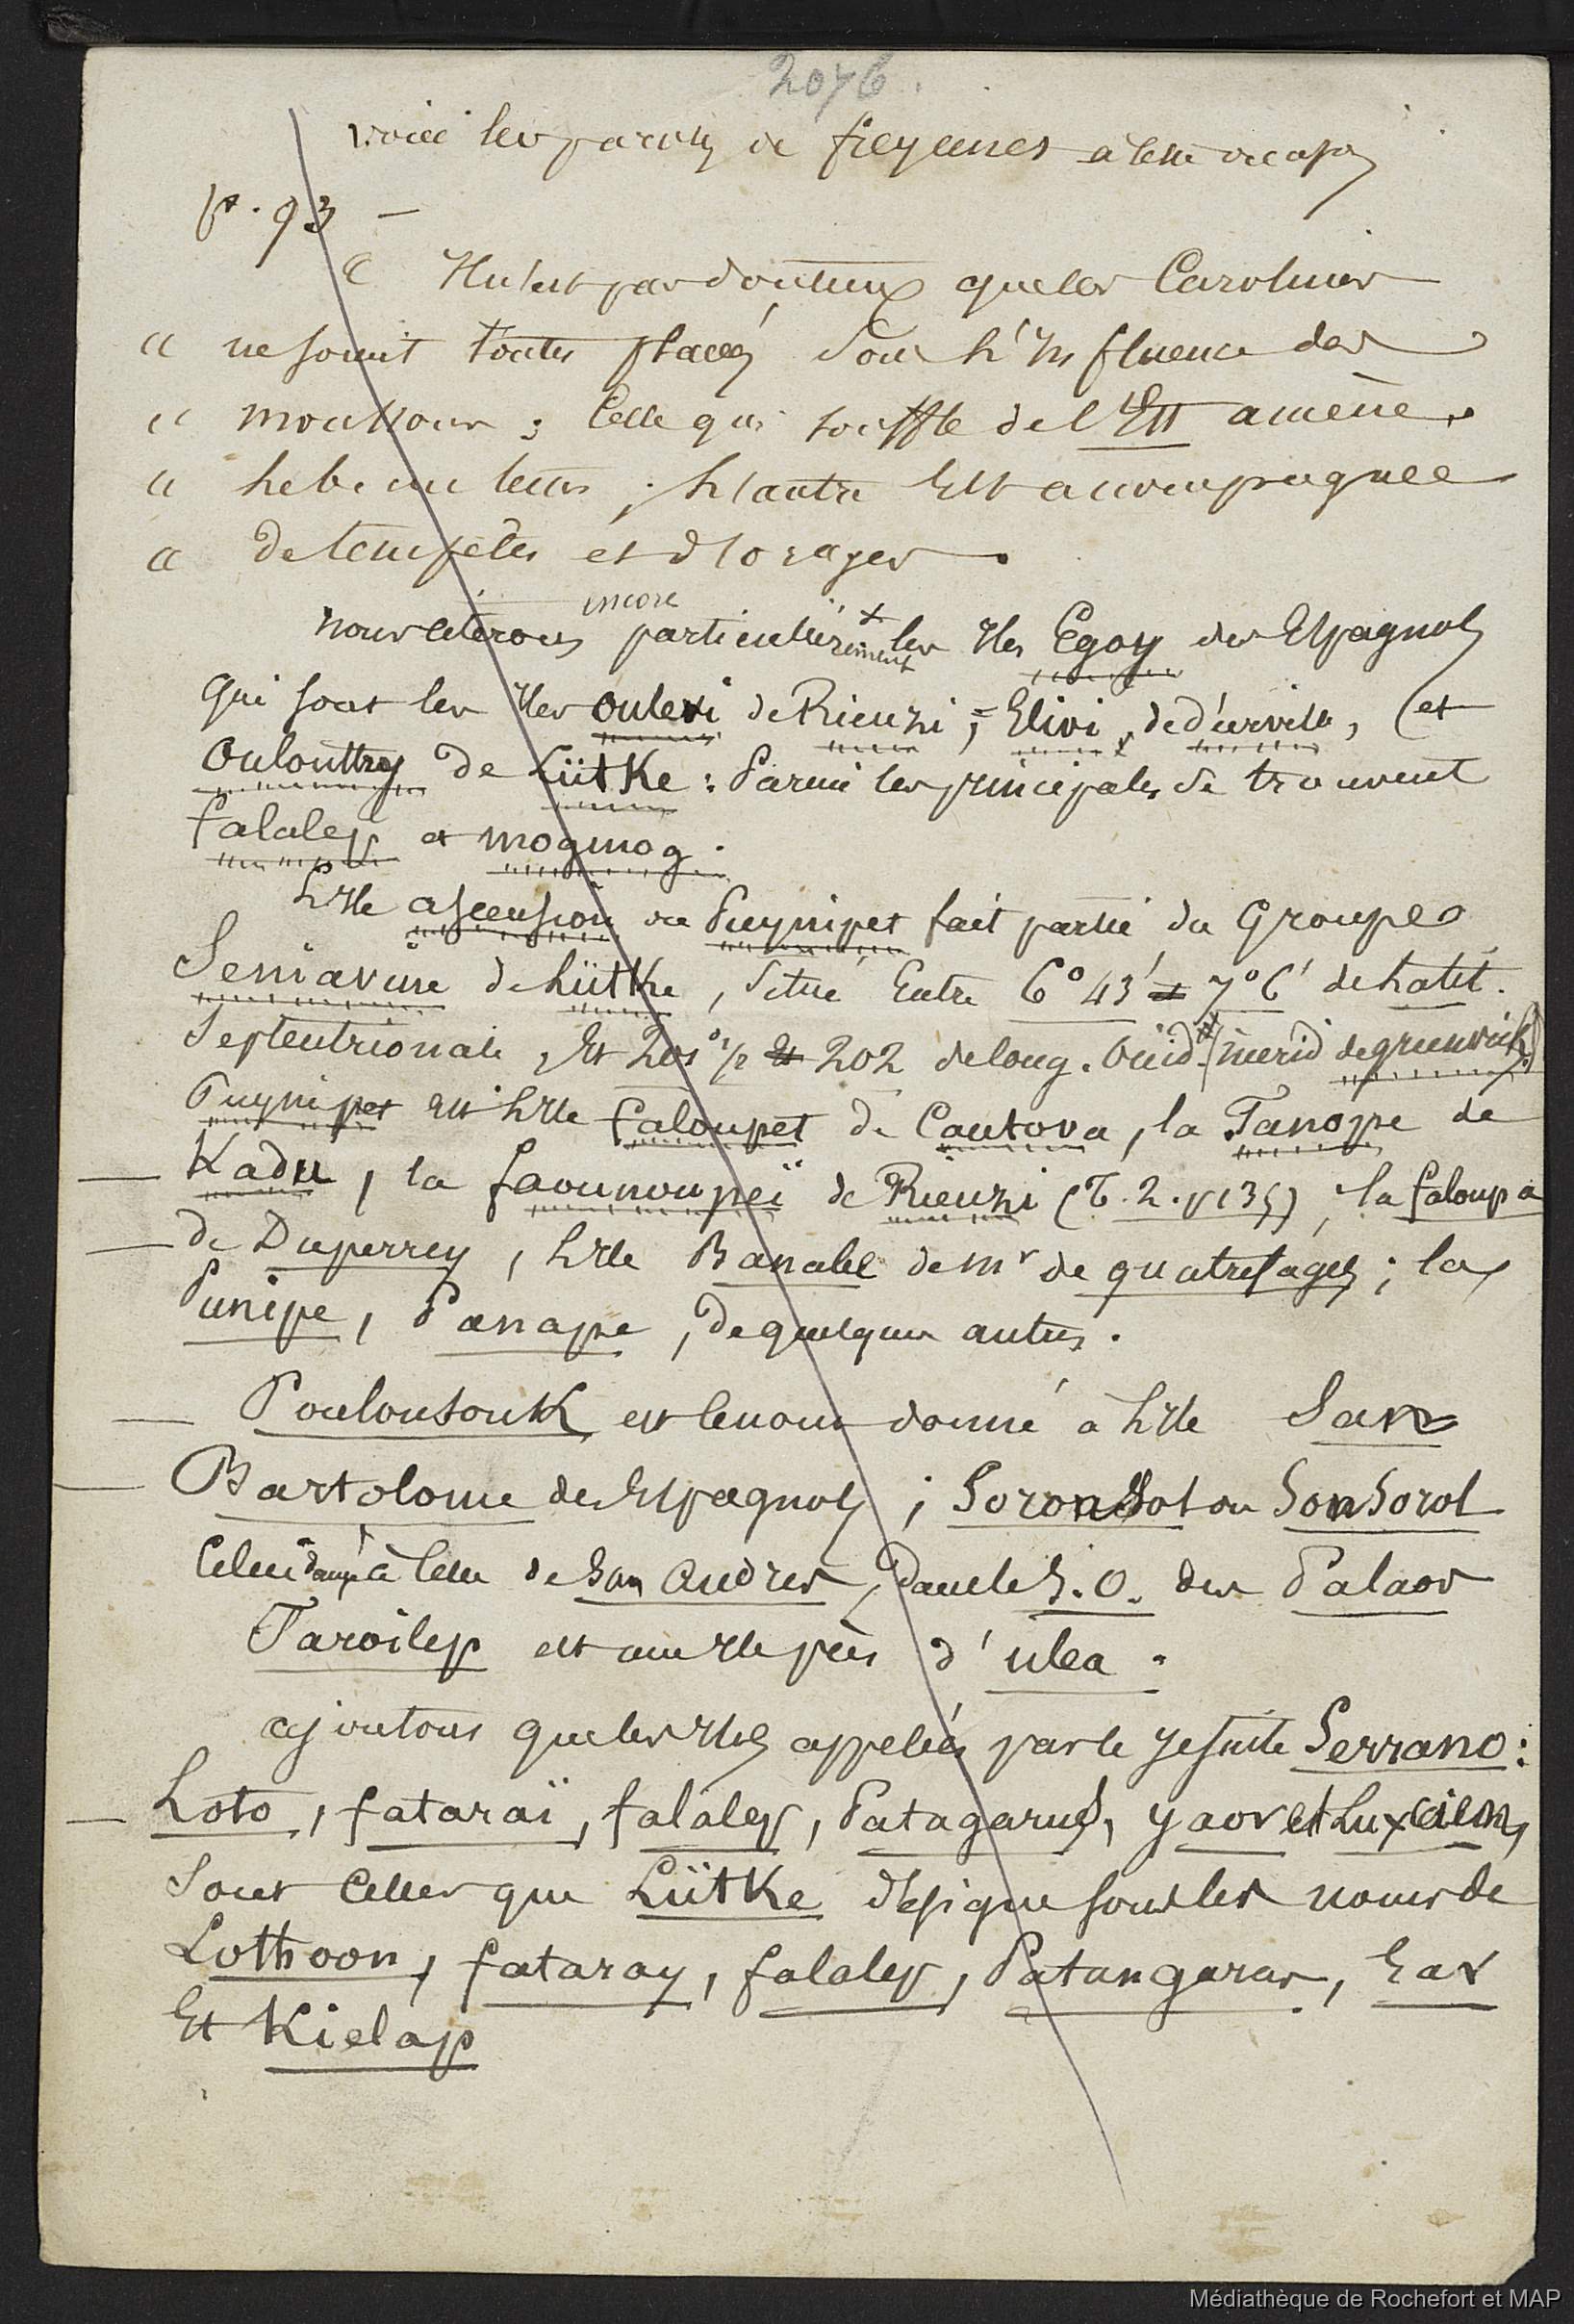 2076.
voici les paroles de freycinet à cette occasion
p. 93 —
« Il n'est pas douteux que les Carolines
« ne soient toutes placées sous l'Influence des
« moussons ; Celle qui souffle de l'Est amène
« le beau tems ; l'autre Est accompagnée
« de tempêtes et d'orages.
encore
nous citerons particulièrement les Iles Egoy des Espagnols
qui sont les Iles oulevi de Rienzi, Elivi de d'urville, (et
Oulouttry de Lütke : Parmi les principales se trouvent
falalep et mogmog.
L'Ile ascension ou Puynipet fait partie du Groupe
Seniavine de Lütke, Situé Entre 6° 43' et 7° 6' de Latit.
Septentrionale, Et 201° 1/2 Et 202 de long. Occid. (merid de greenwich)
Puynipet est l'Ile faloupet de Cantova, la Tanope de
— Kadu, la faounoupeï de Rienzi (T. 2. p 135), la faloupa
— de Duperrey, l'Ile Banabe de mr de quatrefages ; la
Punipe, Panape, de quelques autres.
— Poulousouk est le nom donné à l'Ile San
— Bartolome des Espagnols ; Soronsol ou Sonsorol
Celui donné à Celle de San Andres, Dans le S. O. des Palaos
Taroilep est une Ile près d'ulea.
ajoutons que les Iles appelées par le jesuite Serrano :
— Loto, fataraï, falalep, Patagarus, yaor et Luxaien,
Sont Celles que Lütke désigne sous les noms de
Lothoon, fataray, falalep, Patangaras, Ear
Et Kielap
Médiathèque de Rochefort et MAP